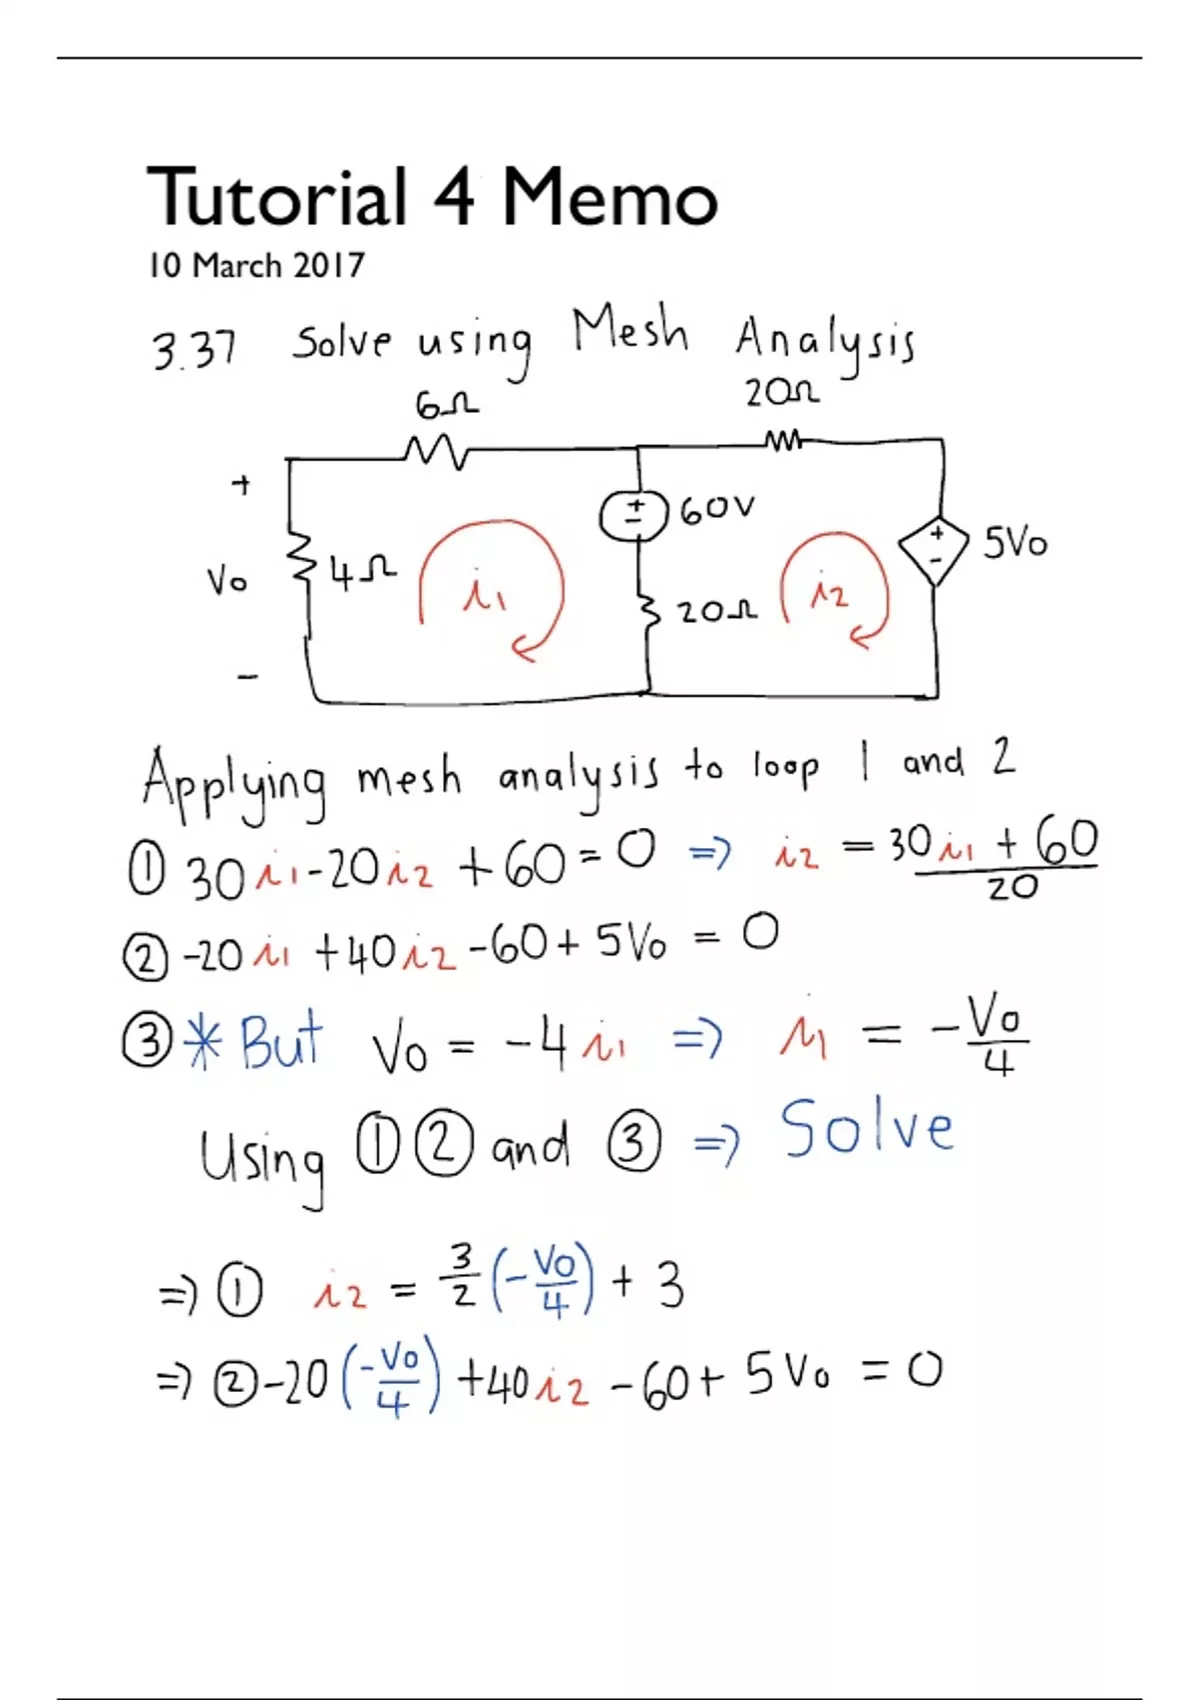 Tutorial 4 Memo
10 March 2017
3.37 Solve using Mesh Analysis
6Ω 20Ω
+
60V
+
-
+
-
5Vo
Vo
4Ω
i1
20Ω
i2
-
Applying mesh analysis to loop 1 and 2
① 30i1-20i2 +60=0 => i2 = 30i1 + 60
20
② -20i1 +40i2 -60+ 5Vo = 0
③ * But Vo = -4i1 => i1 = -Vo/4
Using ① ② and ③ => Solve
=> ① i2 = 3/2 (-Vo/4) + 3
=> ② -20 (-Vo/4) +40i2 -60+ 5Vo = 0